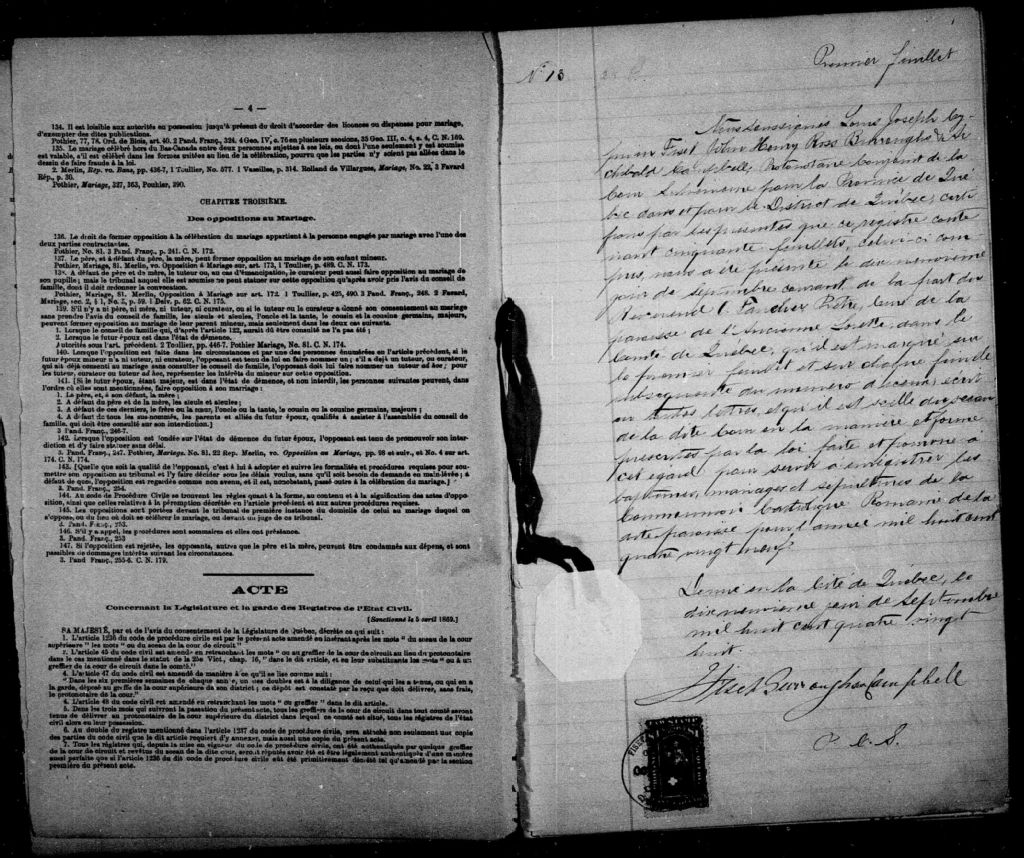 — 4 —
134. Il est loisible aux autorités en possession jusqu'à présent du droit d'accorder des licences ou dispenses pour mariage,
d'exempter des dites publications.
Pothier, 77, 78. Ord. de Blois, art. 40. 2 Pand. Franç., 324. 4 Geo. IV, c. 76 en plusieurs sections, 35 Geo. III, c. 4, s. 4, C. N. 169.
135. Le mariage célébré hors du Bas-Canada entre deux personnes sujettes à ses lois, ou dont l'une seulement y est soumise
est valable, s'il est célébré dans les formes usitées au lieu de la célébration, pourvu que les parties n'y soient pas allées dans le
dessin de faire fraude à la loi.
2. Merlin, Rep. vo. Bans, pp. 436-7, 1 Toullier, No. 577. 1 Vaseilles, p. 314. Rolland de Villargues, Mariage, No. 22, 3 Favard
Rép., p. 30.
Pothier, Mariage, 327, 363, Pouhier, 390.
CHAPITRE TROISIÈME.
Des oppositions au Mariage.
136. Le droit de former opposition à la célébration du mariage appartient à la personne engagée par mariage avec l'une des
deux parties contractantes.
Pothier, No. 81. 3 Pand. Franç., p. 241. C. N. 172.
137. Le père, et à défaut du père, la mère, peut former opposition au mariage de son enfant mineur.
Pothier, Mariage, 81. Merlin, vo. Opposition à Mariage sur art. 173, 1 Toullier, p. 489. C. N. 173.
138. A défaut de père et de mère, le tuteur ou, au cas d'émancipation, le curateur peut aussi faire opposition au mariage de
son pupille; mais le tribunal auquel elle est soumise ne peut statuer sur cette opposition qu'après avoir pris l'avis du conseil de
famille, dont il doit ordonner la convocation.
Pothier, Mariage, 81. Merlin, Opposition à Mariage sur art. 172. 1 Toullier, p. 425, 490. 3 Pand. Franç., 248. 2 Favard,
Mariage, sec. 2, § 1, No. 3, p. 59. 1 Delv. p. 62. C. N. 175.
139. S'il n'y a ni père, ni mère, ni tuteur, ni curateur, ou si le tuteur ou le curateur a donné son consentement au mariage
sans prendre l'avis du conseil de famille, les aïeuls et aïeules, l'oncle et la tante, le cousin et la cousine germains, majeurs,
peuvent former opposition au mariage de leur parent mineur, mais seulement dans les deux cas suivants.
1. Lorsque le conseil de famille qui, d'après l'article 122, aurait dû être consulté ne l'a pas été;
2. Lorsque le futur époux est dans l'état de démence.
Autorités sous l'art. précédent. 2 Toullier, pp. 446-7. Pothier Mariage, No. 81. C. N. 174.
140. Lorsque l'opposition est faite dans les circonstances et par une des personnes énumérées en l'article précédent, si le
futur époux mineur n'a ni tuteur, ni curateur, l'opposant est tenu de lui en faire nommer un; s'il a déjà un tuteur, ou curateur,
qui ait déjà consenti au mariage sans consulter le conseil de famille, l'opposant doit lui faire nommer un tuteur ad hoc; pour
les tuteur, curateur ou tuteur ad hoc, représenter les intérêts du mineur sur cette opposition.
141. [Si le futur époux, étant majeur, est dans l'état de démence, et non interdit, les personnes suivantes peuvent, dans
l'ordre où elles sont mentionnées, faire opposition à son mariage:
1. Le père, et à son défaut, la mère;
2. A défaut du père et de la mère, les aïeuls et aïeules;
3. A défaut de ces derniers, le frère ou la sœur, l'oncle ou la tante, le cousin ou la cousine germains, majeurs;
4. A défaut de tous les sus-nommés, les parents et alliés du futur époux, qualifiés à assister à l'assemblée du conseil de
famille, qui doit être consulté sur son interdiction.]
3 Pand. Franç., 246-7.
142. Lorsque l'opposition est fondée sur l'état de démence du futur époux, l'opposant est tenu de promouvoir son inter-
diction et d'y faire statuer sans délai.
3. Pand. Franç., 247. Pothier, Mariage. No. 81. 22 Rep. Merlin, vo. Opposition au Mariage, pp. 98 et suiv., et No. 4 sur art.
174. C. N. 174.
143. [Quelle que soit la qualité de l'opposant, c'est à lui à adopter et suivre les formalités et procédures requises pour sou-
mettre son opposition au tribunal et l'y faire décider sous les délais voulus, sans qu'il soit besoin de demande en main-levée; à
défaut de quoi, l'opposition est regardée comme non avenu, et il est, nonobstant, passé outre à la célébration du mariage.]
3. Pand. Franç., 254.
144. Au code de Procédure Civile se trouvent les règles quant à la forme, au contenu et à la signification des actes d'oppo-
sition, ainsi que celles relatives à la péremption décrétée en l'article précédent et aux autres procédures requises.
145. Les oppositions sont portées devant le tribunal de première instance du domicile de celui au mariage duquel on
s'oppose, ou du lieu où doit se célébrer le mariage, ou devant un juge de ce tribunal.
3. Pand. Franç., 253.
146. S'il y a appel, les procédures sont sommaires et elles ont préséance.
3. Pand. Franç., 253
147. Si l'opposition est rejetée, les opposants, autres que le père et la mère, peuvent être condamnés aux dépens, et sont
passibles de dommages intérêts suivant les circonstances.
3. Pand Franç., 255-6. C. N. 179.
ACTE
Concernant la Législature et la garde des Registres de l'Etat Civil.
[Sanctionné le 5 avril 1869.]
SA MAJESTÉ, par et de l'avis du consentement de la Législature de Québec, décrète ce qui suit:
1. L'article 1236 du code de procédure civile est par le présent acte amendé en insérant après les mots " du sceau de la cour
supérieure " les mots " ou du sceau de la cour de circuit."
2. L'article 45 du code civil est amendé en retranchant les mots " ou au greffier de la cour de circuit au lieu du protonotaire
dans le cas mentionné dans le statut de la 25e Vict., chap. 16, " dans le dit article, et en leur substituants les mots " ou à un
greffier de la cour de circuit dans le comté."
3. L'article 47 du code civil est amendé de manière à ce qu'il se lise comme suit:
" Dans les six premières semaines de chaque année, un des doubles est à la diligence de celui qui les a tenus, ou qui en a
la garde, déposé au greffe de la cour supérieure de son district; ce dépôt est constaté par le reçu que doit délivrer, sans frais,
le protonotaire de la cour."
4. L'article 48 du code civil est amendé en retranchant les mots " ou greffier " dans le dit article.
5. Dans les trois mois qui suivront la passation du présent acte, tous les greffiers de la cour de circuit dans tout comté seront
tenus de délivrer au protonotaire de la cour supérieure du district dans lequel ce comté est situé, tous les registres de l'état
civil alors en leur possession.
6. Au double du registre mentionné dans l'article 1237 du code de procédure civile, sera attaché non seulement une copie
des parties du code civil que le dit article requiert d'y annexer, mais aussi une copie du présent acte.
7. Tous les registres qui, depuis la mise en vigueur du code de procédure civile, ont été authentiqués par quelques greffier
de la cour de circuit et revêtus du sceau de la dite cour, seront réputés avoir été et être légalement authentiqués d'une manière
aussi parfaite que si l'article 1236 du dit code de procédure civile eût été primitivement décrété tel qu'amendé par la section
première du présent acte.
N° 13
Premier feuillet
Nous soussignés Louis Joseph Cy-
prien Fiset William Henry Ross Burroughs & Ar-
chibald Campbell, Protonotaire Conjoint de la
Cour Supérieure pour la Province de Qué-
bec dans et pour le District de Québec, certi-
fions par les présentes que ce registre conte-
nant cinquante feuillets, celui-ci com-
pris, nous a été présenté le dix-neuvième
jour de septembre courant de la part du
Révérend Prêtre, Curé de la
paroisse de l'Ancienne Lorette, dans le
Comté de Québec, qu'il est marqué sur
le premier feuillet et sur chaque feuille
subséquente du numéro d'icelui, écrit
en toutes lettres, et qu'il est scellé du sceau
de la dite Cour en la manière et forme
prescrites par la loi faite et pourvue à
cet égard pour servir à enregistrer les
baptêmes, mariages et sépultures de la
Communion Catholique Romaine de la
dite paroisse pour l'année mil huit cent
quatre vingt neuf.
Donné en la Cité de Québec, le
dix-neuvième jour de septembre
mil huit cent quatre vingt
huit.
Fiset Burroughs Campbell
P. C. S.